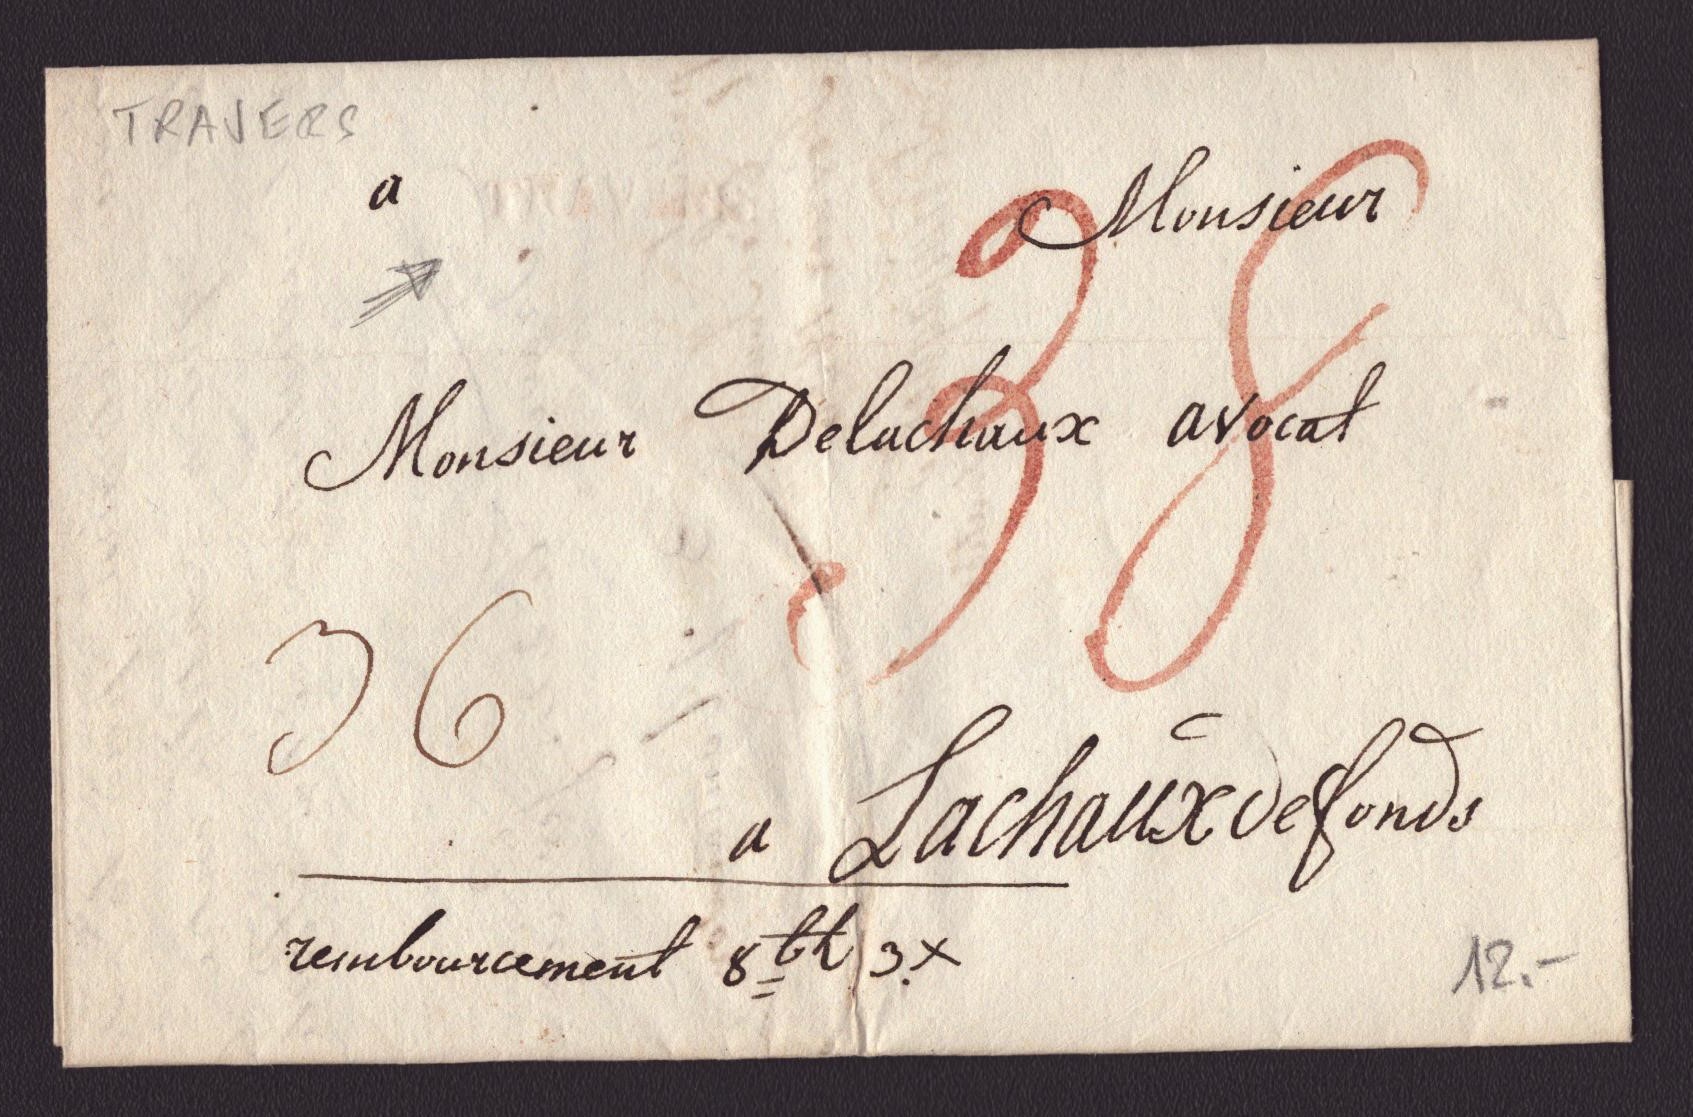 TRAVERS
a Monsieur
38
Monsieur Delachaux avocat
36
a Lachaux de fonds
rembourcement 8 bh 3.x
12.-